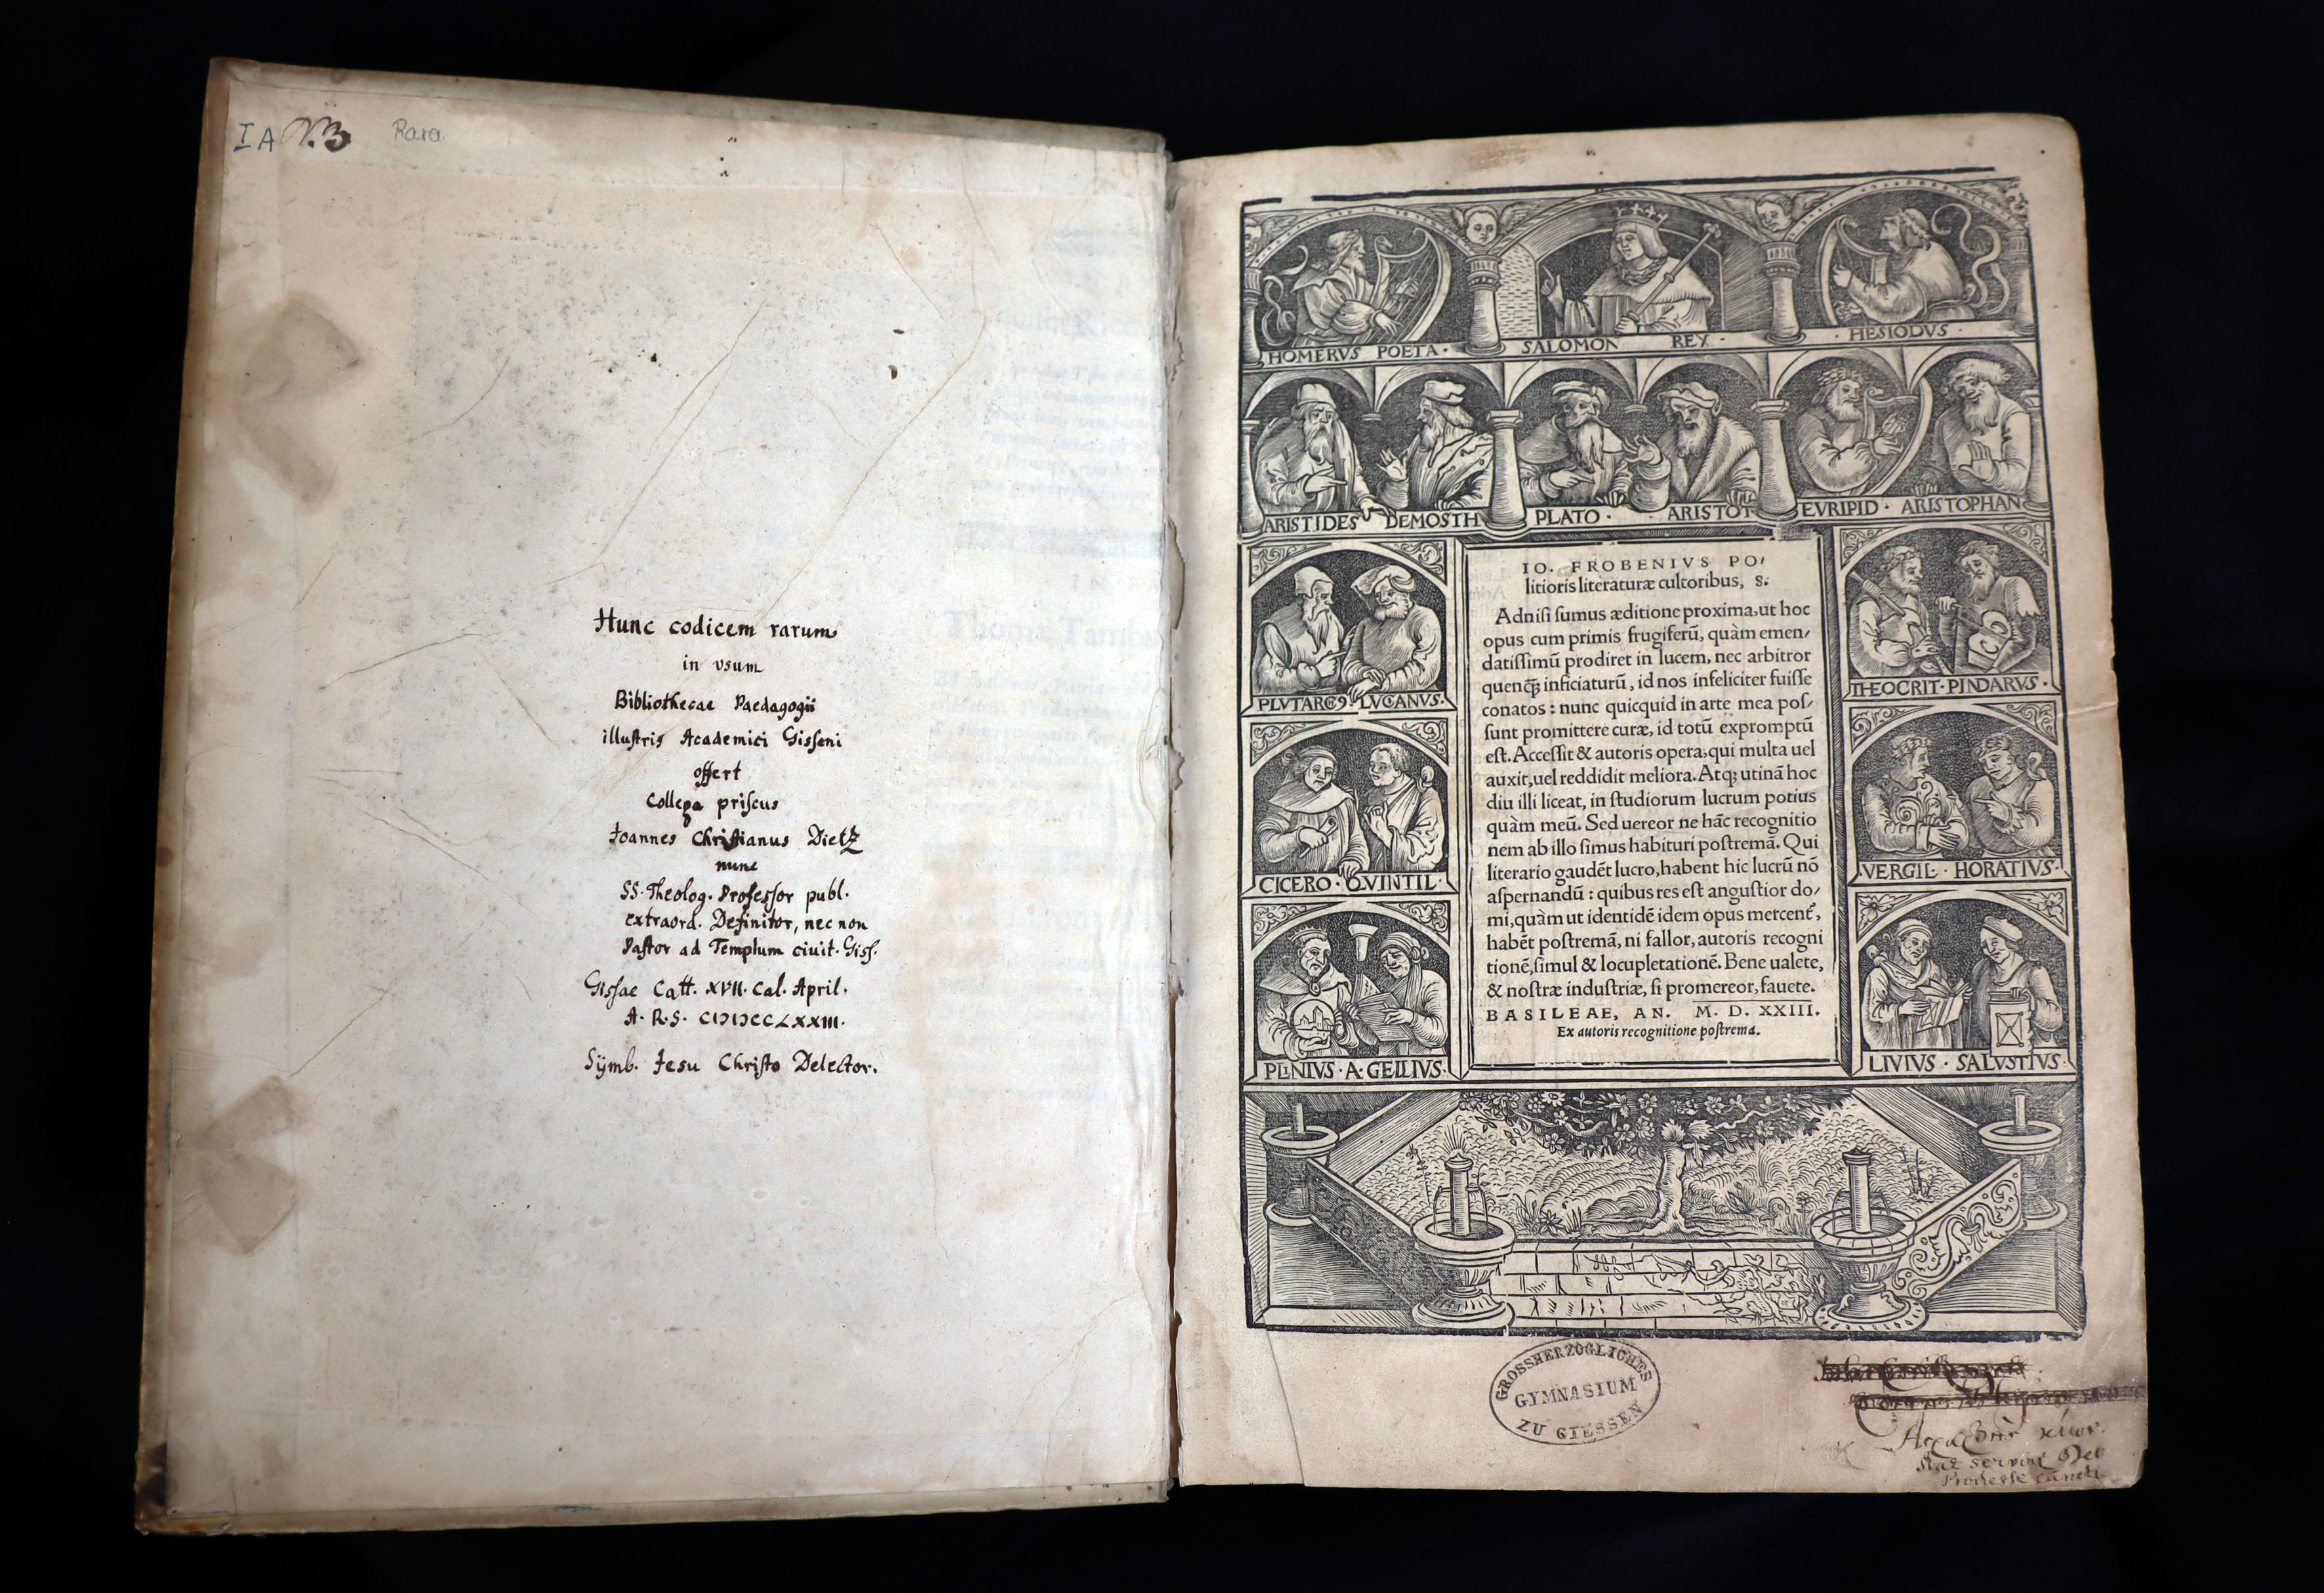 IA N.3 Rara
Hunc codicem rarum
in vsum
Bibliothecae Paedagogii
illuſtris Academici Giſſeni
offert
Collega priſcus
Joannes Chriſtianus Dietz
nunc
SS. Theolog. Profeſſor publ.
extraord. Definitor, nec non
Paſtor ad Templum civit. Giſſ.
Giſſae Catt. XVII. Cal. April.
A. R. S. CIↃIↃCCLXXIII.
Sÿmb. Jesu Chriſto Delector.
HOMERVS POETA · SALOMON REX · HESIODVS ·
ARISTIDES DEMOSTH PLATO · ARISTOT EVRIPID · ARISTOPHAN
PLVTARCꝰ · LVCANVS ·
CICERO · QVINTIL ·
PLINIVS · A · GELLIVS
IO. FROBENIVS PO/
litioris literaturæ cultoribus, s.
Adniſi ſumus æditione proxima, ut hoc
opus cum primis frugiferū, quàm emen/
datiſſimū prodiret in lucem, nec arbitror
quenq̃ꝫ inficiaturū, id nos infeliciter fuiſſe
conatos : nunc quicquid in arte mea poſ/
ſunt promittere curæ, id totū expromptū
eſt. Acceſſit & autoris opera, qui multa uel
auxit, uel reddidit meliora. Atqꝫ utinā hoc
diu illi liceat, in ſtudiorum lucrum potius
quàm meū. Sed uereor ne hāc recognitio
nem ab illo ſimus habituri poſtremā. Qui
literario gaudēt lucro, habent hic lucrū nō
aſpernandū : quibus res eſt anguſtior do/
mi, quàm ut identidē idem opus mercent̃,
habēt poſtremā, ni fallor, autoris recogni
tionē, ſimul & locupletationē. Bene ualete,
& noſtræ induſtriæ, ſi promereor, fauete.
BASILEAE, AN. M. D. XXIII.
Ex autoris recognitione poſtrema.
THEOCRIT · PINDARVS ·
VERGIL · HORATIVS ·
LIVIVS · SALVSTIVS ·
GROSSHERZOGLICHES
GYMNASIUM
ZU GIESSEN
servire Deo
Prodesse